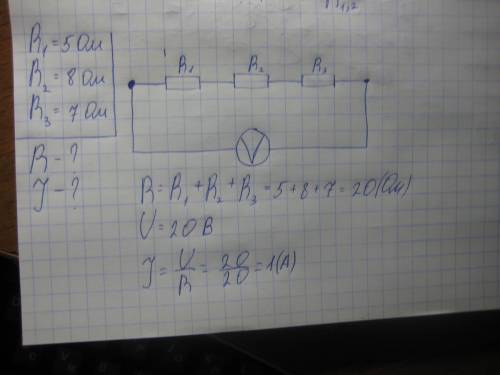 R₁,₂
R₁ = 5 Ом
R₂ = 8 Ом
R₃ = 7 Ом
R - ?
J - ?
R₁ R₂ R₃
V
R = R₁ + R₂ + R₃ = 5 + 8 + 7 = 20 (Ом)
U = 20 В
J = U/R = 20/20 = 1 (А)